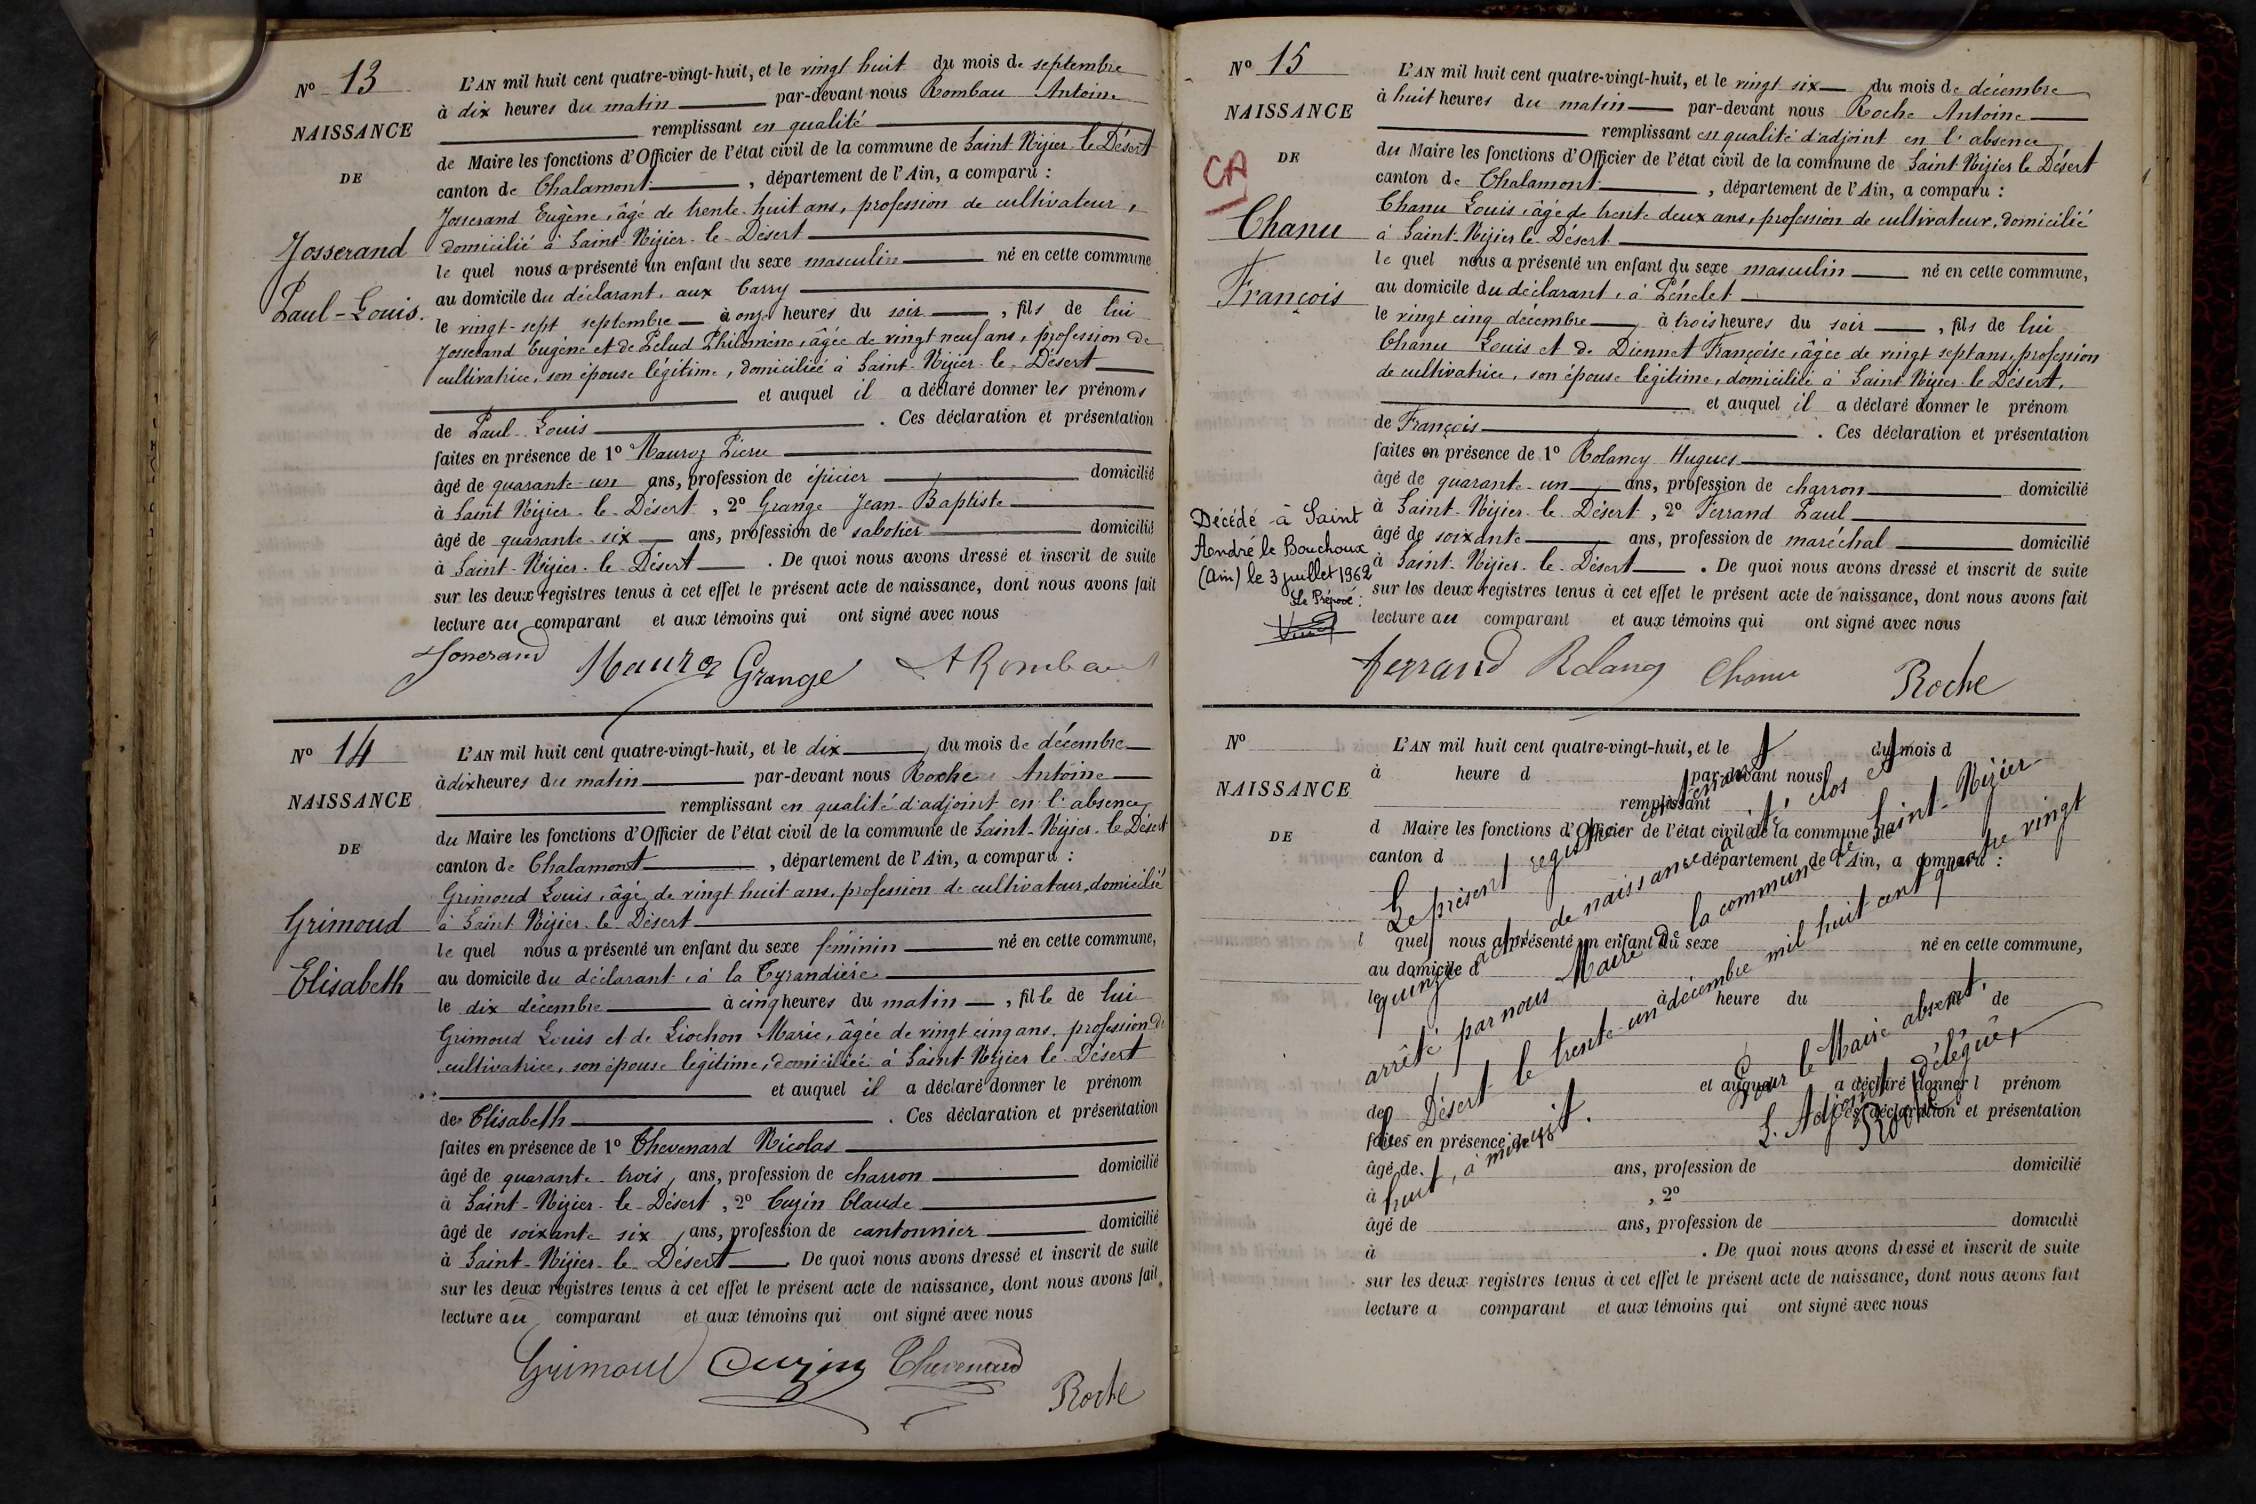 Nº 13
NAISSANCE
DE
Josserand
Paul-Louis.
L'AN mil huit cent quatre-vingt-huit, et le vingt huit du mois de septembre
à dix heures du matin par-devant nous Rombau Antoine
remplissant en qualité
de Maire les fonctions d'Officier de l'état civil de la commune de Saint Nizier le Désert
canton de Chalamont, département de l'Ain, a comparu :
Josserand Eugène, âgé de trente-huit ans, profession de cultivateur,
domicilié à Saint-Nizier-le-Désert
le quel nous a présenté un enfant du sexe masculin né en cette commune
au domicile du déclarant, aux Carry
le vingt-sept septembre à onze heures du soir, fils de lui
Josserand Eugène et de Pelud Philomène, âgée de vingt neuf ans, profession de
cultivatrice, son épouse légitime, domiciliée à Saint-Nizier-le-Désert
et auquel il a déclaré donner les prénoms
de Paul-Louis. Ces déclaration et présentation
faites en présence de 1º Mauroz Pierre
âgé de quarante-un ans, profession de épicier domicilié
à Saint Nizier-le-Désert, 2º Grange Jean-Baptiste
âgé de quarante-six ans, profession de sabotier domicilié
à Saint-Nizier-le-Désert. De quoi nous avons dressé et inscrit de suite
sur les deux registres tenus à cet effet le présent acte de naissance, dont nous avons fait
lecture au comparant et aux témoins qui ont signé avec nous
Josserand Mauroz Grange A Rombau
Nº 14
NAISSANCE
DE
Grimoud
Elisabeth
L'AN mil huit cent quatre-vingt-huit, et le dix du mois de décembre
à dix heures du matin par-devant nous Roche Antoine
remplissant en qualité d'adjoint en l'absence
du Maire les fonctions d'Officier de l'état civil de la commune de Saint-Nizier-le Désert
canton de Chalamont, département de l'Ain, a comparu :
Grimoud Louis, âgé de vingt huit ans, profession de cultivateur, domicilié
à Saint Nizier-le-Désert
le quel nous a présenté un enfant du sexe féminin né en cette commune,
au domicile du déclarant, à la Tyrandière
le dix décembre à cinq heures du matin, fille de lui
Grimoud Louis et de Liochon Marie, âgée de vingt cinq ans, profession de
cultivatrice, son épouse légitime, domiciliée à Saint-Nizier le Désert
et auquel il a déclaré donner le prénom
de Elisabeth. Ces déclaration et présentation
faites en présence de 1º Thevenard Nicolas
âgé de quarante-trois, ans, profession de charron domicilié
à Saint-Nizier-le-Désert, 2º Cuzin Claude
âgé de soixante six, ans, profession de cantonnier domicilié
à Saint-Nizier-le-Désert. De quoi nous avons dressé et inscrit de suite
sur les deux registres tenus à cet effet le présent acte de naissance, dont nous avons fait
lecture au comparant et aux témoins qui ont signé avec nous
Grimoud Cuzin Thevenard
Roche
Nº 15
NAISSANCE
DE
CA
Chanu
François
L'AN mil huit cent quatre-vingt-huit, et le vingt six du mois de décembre
à huit heures du matin par-devant nous Roche Antoine
remplissant en qualité d'adjoint en l'absence
du Maire les fonctions d'Officier de l'état civil de la commune de Saint Nizier le Désert
canton de Chalamont, département de l'Ain, a comparu :
Chanu Louis, âgé de trente deux ans, profession de cultivateur, domicilié
à Saint-Nizier le-Désert.
le quel nous a présenté un enfant du sexe masculin né en cette commune,
au domicile du déclarant, à Pénclet
le vingt cinq décembre à trois heures du soir, fils de lui
Chanu Louis et de Diennet Françoise, âgée de vingt sept ans, profession
de cultivatrice, son épouse légitime, domiciliée à Saint Nizier le Désert.
et auquel il a déclaré donner le prénom
de François. Ces déclaration et présentation
faites en présence de 1º Rolancy Hugues
âgé de quarante-un ans, profession de charron domicilié
à Saint-Nizier-le-Désert, 2º Ferrand Paul
âgé de soixante ans, profession de maréchal domicilié
à Saint-Nizier-le-Désert. De quoi nous avons dressé et inscrit de suite
sur les deux registres tenus à cet effet le présent acte de naissance, dont nous avons fait
lecture au comparant et aux témoins qui ont signé avec nous
Décédé à Saint
André le Bouchoux
(Ain) le 3 juillet 1962
Le Préposé :
ferrand Rolancy Chanu Roche
Nº
NAISSANCE
DE
L'AN mil huit cent quatre-vingt-huit, et le du mois d
à heure d par-devant nous
remplissant
d Maire les fonctions d'Officier de l'état civil de la commune de
canton d département de l'Ain, a comparu :
l quel nous a présenté un enfant du sexe né en cette commune,
au domicile d
le à heure du de
et auquel a déclaré donner l prénom
de Ces déclaration et présentation
faites en présence de 1º
âgé de ans, profession de domicilié
à , 2º
âgé de ans, profession de domicilié
à . De quoi nous avons dressé et inscrit de suite
sur les deux registres tenus à cet effet le présent acte de naissance, dont nous avons fait
lecture a comparant et aux témoins qui ont signé avec nous
Le présent registre contenant
quinze actes de naissance a été clos et
arrêté par nous Maire de la commune de Saint-Nizier
le Désert le trente-un décembre mil huit cent quatre vingt
huit, à minuit.
Pour le Maire absent,
L. Adjoint Délégué,
Roche